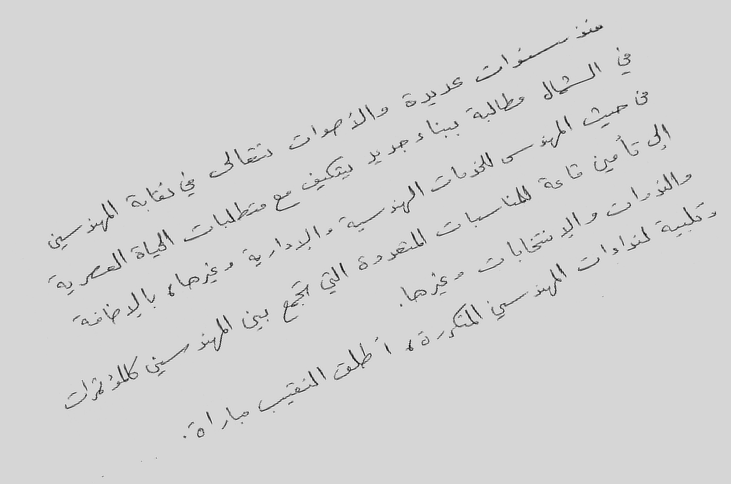 منذ سنوات عديدة والأصوات تتعالى في نقابة المهندسين
في الشمال مطالبة ببناء جديد يتكيف مع متطلبات الحياة العصرية
من حيث المهندس للخدمات الهندسية والإدارية وغيرها، بالإضافة
إلى تأمين قاعة للمناسبات المتعددة التي تجمع بين المهندسين كالمؤتمرات
والندوات والإنتخابات وغيرها.
وتلبية لنداءات المهندسين المتكررة، أطلق النقيب مباراة.